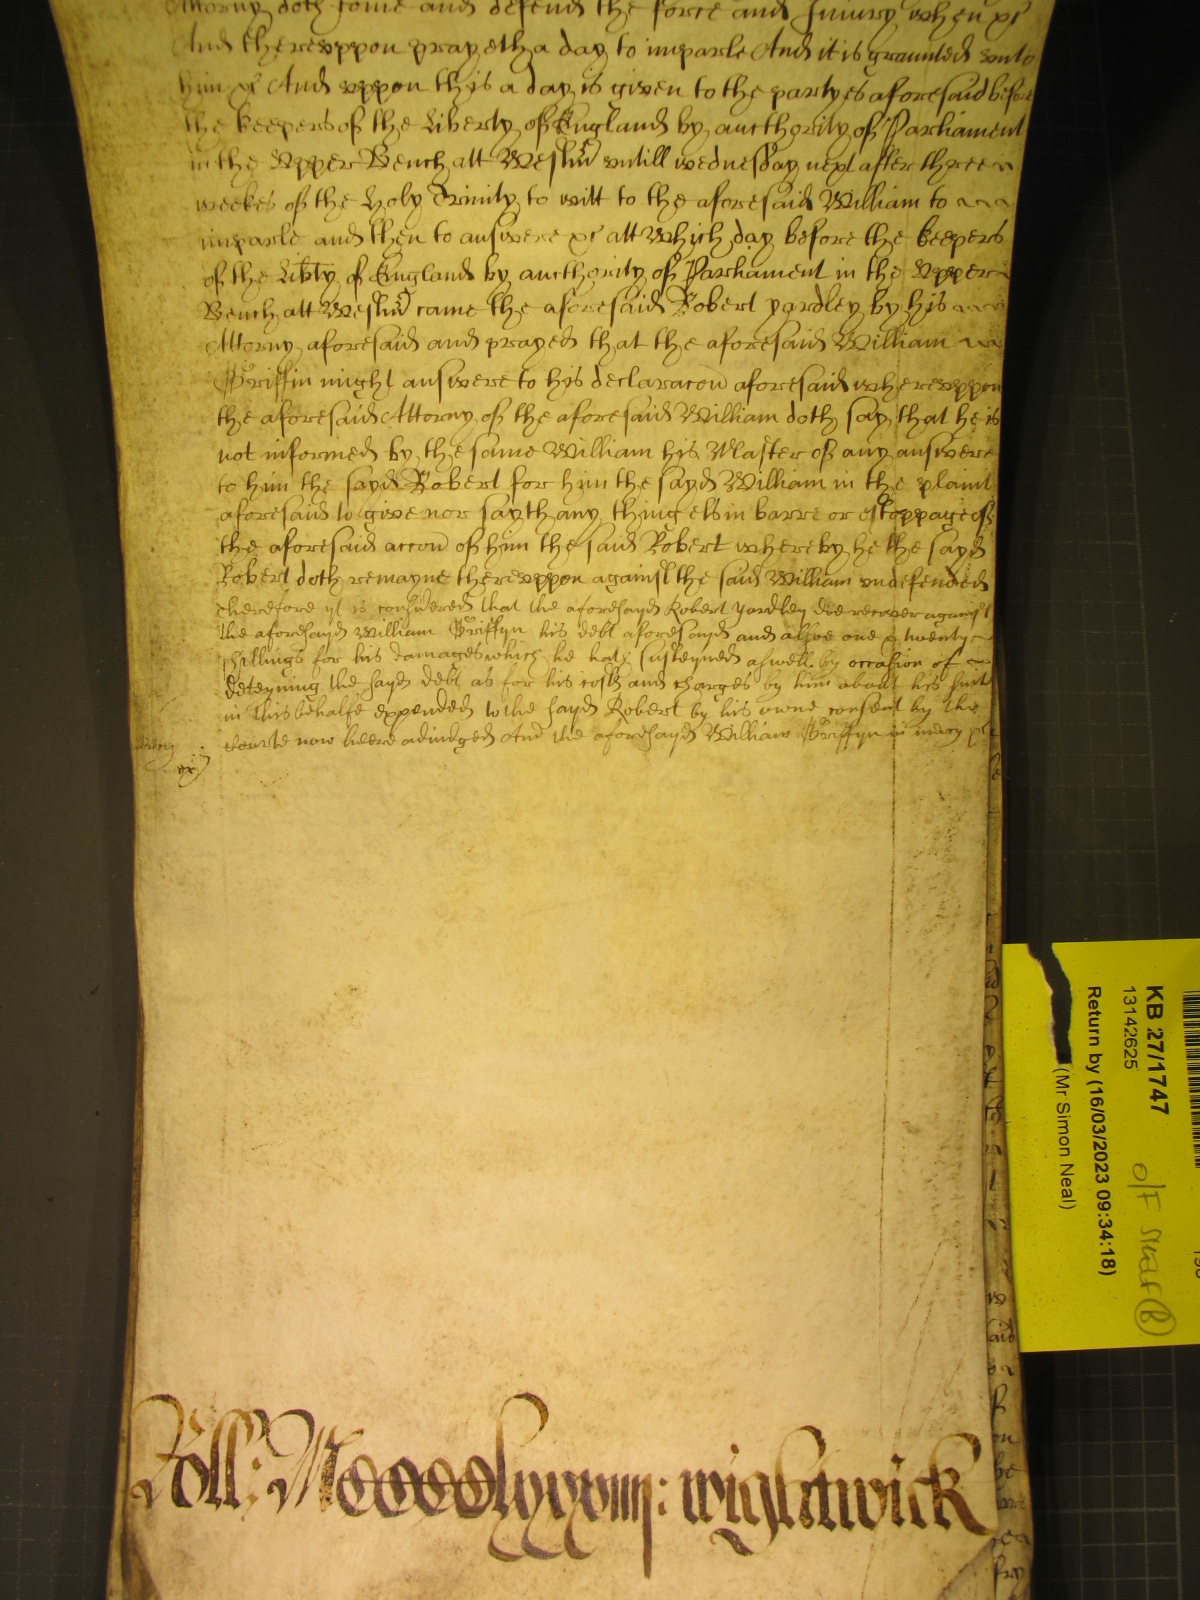 Attorny doth come and defend the force and Injury when &c
And therevppon prayeth a day to imparle And it is graunted vnto
him &c And vppon this a day is given to the partyes aforesaid before
the keepers of the Liberty of England by aucthority of Parliament
in the Vpper Bench att Westm̃ vntill wednesday next after three
weekes of the Holy Trinity to witt to the aforesaid William to
imparle and then to answere &c att which day before the keepers
of the Lib̃ty of England by aucthority of Parliament in the Vpper
Bench att Westm̃ came the aforesaid Robert yardley by his
Attorny aforesaid and prayed that the aforesaid William
Griffin might answere to his declaracoñ aforesaid wherevppon
the aforesaid Attorny of the aforesaid William doth say that he is
not informed by the same William his Master of any answere
to him the sayd Robert for him the sayd William in the plaint
aforesaid to give nor sayth any thing els in barre or estoppage of
the aforesaid accoñ of him the said Robert whereby he the sayd
Robert doth remayne therevppon against the said William vndefended
therefore yt is considered that the aforesayd Robert yardley doe recover against
the aforesayd William Griffyn his debt aforesayd and alsoe one & twenty
shillings for his damages which he hath susteyned aswell by occasion of
deteyning the sayd debt as for his costs and charges by him about his suit
in this behalfe expended to the sayd Robert by his owne consent by the
Courte now heere adiudged And the aforesayd William Griffyn in mercy &c
Roll: Mccccclxxxviiij: wightwick
KB 27/1747
13142625
Return by (16/03/2023 09:34:18)
(Mr Simon Neal)
O/F